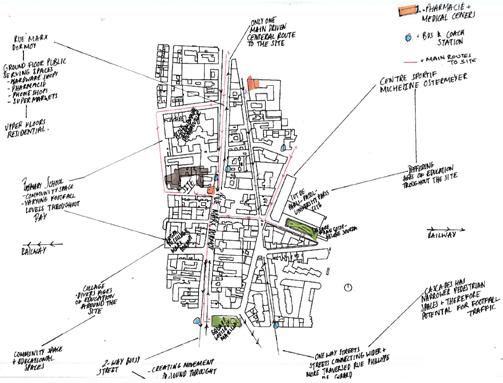 RUE MARX
DORMOY
GROUND FLOOR PUBLIC
SERVING SPACES
- HARDWARE SHOPS
- PHARMACIE
- PHONE SHOPS
- SUPER MARKETS
UPPER FLOORS
RESIDENTIAL.
ONLY ONE
MAIN DRIVEN
CENTERAL ROUTE
TO THE SITE
= PHARMACIE +
MEDICAL CENTERS
= BUS & COACH
STATION
= MAIN ROUTES
TO SITE
CENTRE SPORTIF
MICHELINE OSTERMEYER
PRIMARY SCHOOL
- COMMUNITY SPACE
- VARYING FOOTFALL
LEVELS THROUGHOUT
DAY
SITE
RUE MARX DORMOY
DIFFERING
AGES OF EDUCATION
THROUGHOUT THE SITE
RAILWAY
RAILWAY
COLLAGE
- DIVERS AGES
OF EDUCATION
AROUND THE
SITE
CASCADES HAS
NARROWER PEDESTRIAN
SPACES + THEREFORE
POTENTIAL FOR FOOTFALL
TRAFFIC.
COMMUNITY SPACE
+ EDUCATIONAL
SPACES
2-WAY BUSY
STREET
- CREATING MOVEMENT
ONE WAY STREETS
STREETS CONNECTING WIDER +
MORE TRAVERSED RUE PHILIPPE
DE GIRARD